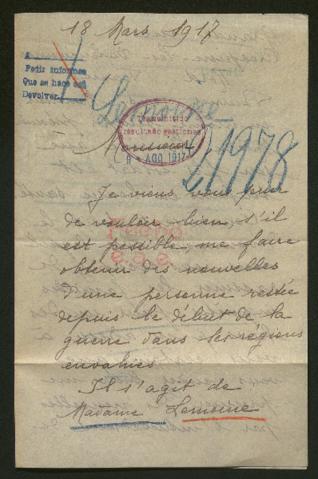 18 Mars 1917
Pedir informes
Que se hace así
Devolver.
Lemoine
Transmitido
resultando gestiones
8 AGO 1917
21978
Monsieur
Je viens vous prier
de vouloir bien s'il
est possible me faire
obtenir des nouvelles
d'une personne restée
depuis le début de la
guerre dans les régions
envahies.
Il s'agit de
Madame Lemoine